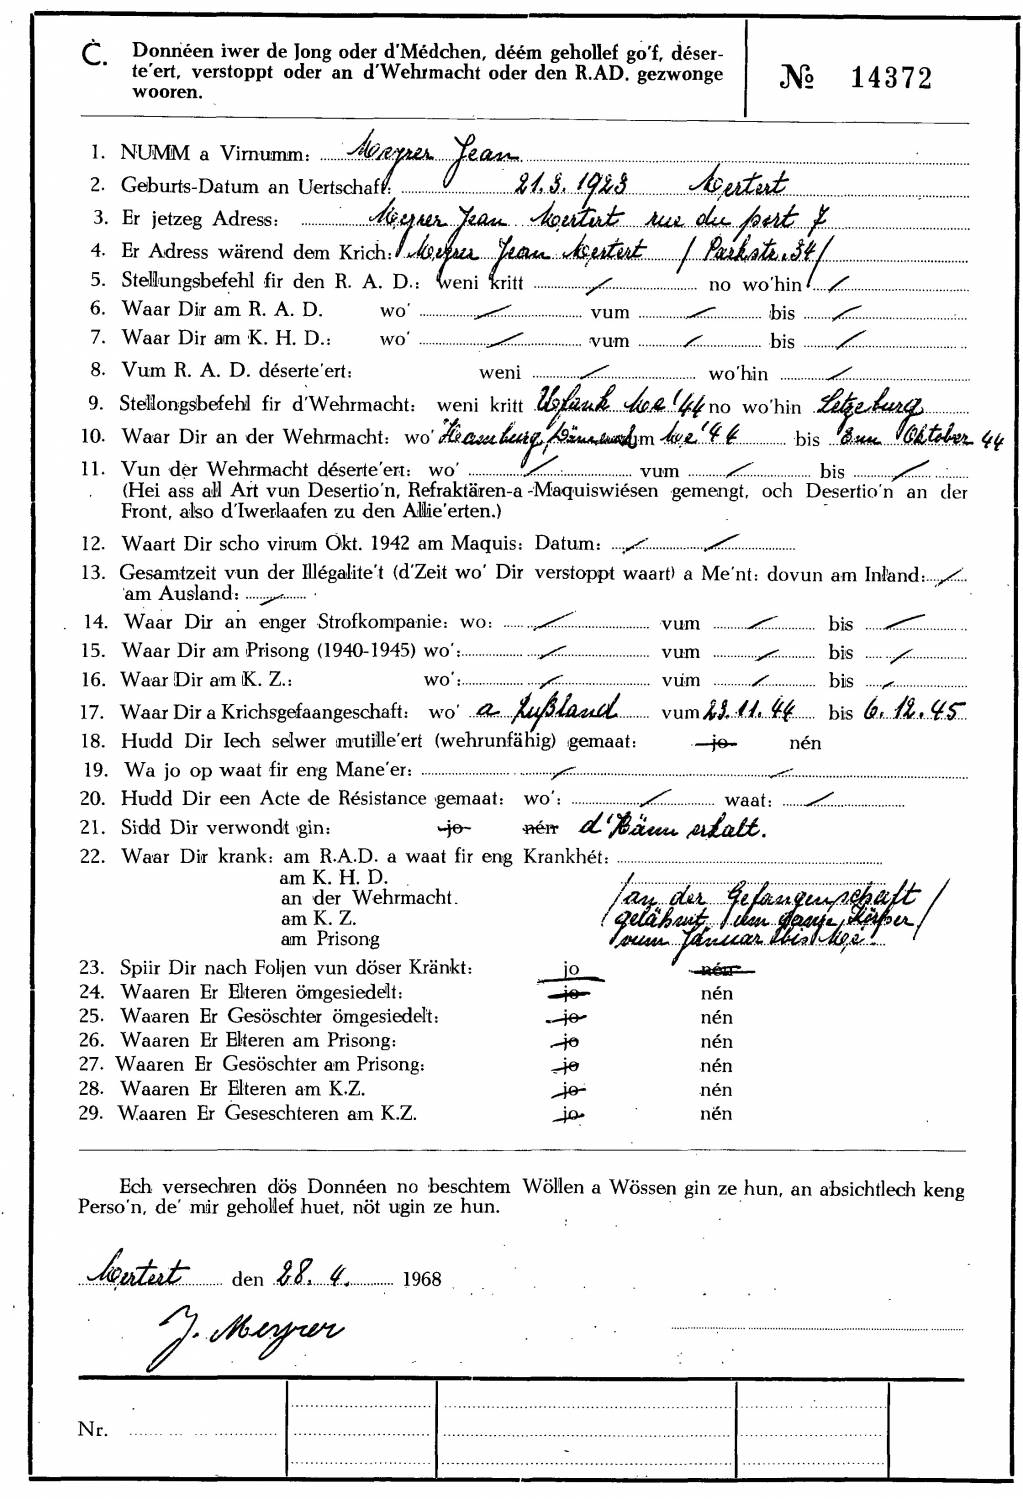 C. Donnéen iwer de Jong oder d'Médchen, déém gehollef go'f, déser-
te'ert, verstoppt oder an d'Wehrmacht oder den R.AD. gezwonge
wooren.
№ 14372
1. NUMM a Virnumm: Meyrer Jean
2. Geburts-Datum an Uertschaft: 21.3.1923 Mertert
3. Er jetzeg Adress: Meyrer Jean Mertert rue du port 7
4. Er Adress wärend dem Krich: Meyrer Jean Mertert / Parkstr. 34/
5. Stellungsbefehl fir den R. A. D.: weni kritt / no wo'hin /
6. Waar Dir am R. A. D. wo' / vum / bis /
7. Waar Dir am K. H. D.: wo' / vum / bis /
8. Vum R. A. D. déserte'ert: weni / wo'hin /
9. Stellongsbefehl fir d'Wehrmacht: weni kritt Ufank Mee '44 no wo'hin Letzeburg
10. Waar Dir an der Wehrmacht: wo' Hamburg, vum Mee '44 bis Enn Oktober 44
11. Vun der Wehrmacht déserte'ert: wo' / vum / bis /
(Hei ass all Art vun Desertio'n, Refraktären-a -Maquiswiésen gemengt, och Desertio'n an der
Front, also d'Iwerlaafen zu den Allie'erten.)
12. Waart Dir scho virum Okt. 1942 am Maquis: Datum: / /
13. Gesamtzeit vun der Illégalite't (d'Zeit wo' Dir verstoppt waart) a Me'nt: dovun am Inland: /
am Ausland: /
14. Waar Dir an enger Strofkompanie: wo: / vum / bis /
15. Waar Dir am Prisong (1940-1945) wo': / vum / bis /
16. Waar Dir am K. Z.: wo': / vum / bis /
17. Waar Dir a Krichsgefaangeschaft: wo' a Rußland vum 23.11.44 bis 6.12.45
18. Hudd Dir Iech selwer mutille'ert (wehrunfähig) gemaat: jo nén
19. Wa jo op waat fir eng Mane'er: / /
20. Hudd Dir een Acte de Résistance gemaat: wo': / waat: /
21. Sidd Dir verwondt gin: jo nén d'Bänn erkalt.
22. Waar Dir krank: am R.A.D. a waat fir eng Krankhét:
am K. H. D. /
an der Wehrmacht. /an der Gefangenschaft/
am K. Z. (gelähmt um ganze Körper/
am Prisong vum Januar bis Mee.
23. Spiir Dir nach Foljen vun döser Kränkt: jo nén
24. Waaren Er Elteren ömgesiedelt: jo nén
25. Waaren Er Gesöschter ömgesiedelt: jo nén
26. Waaren Er Elteren am Prisong: jo nén
27. Waaren Er Gesöschter am Prisong: jo nén
28. Waaren Er Elteren am K.Z. jo nén
29. Waaren Er Geseschteren am K.Z. jo nén
Ech versechren dös Donnéen no beschtem Wöllen a Wössen gin ze hun, an absichtlech keng
Perso'n, de' mir gehollef huet, nöt ugin ze hun.
Mertert den 28. 4. 1968
J. Meyrer
Nr.